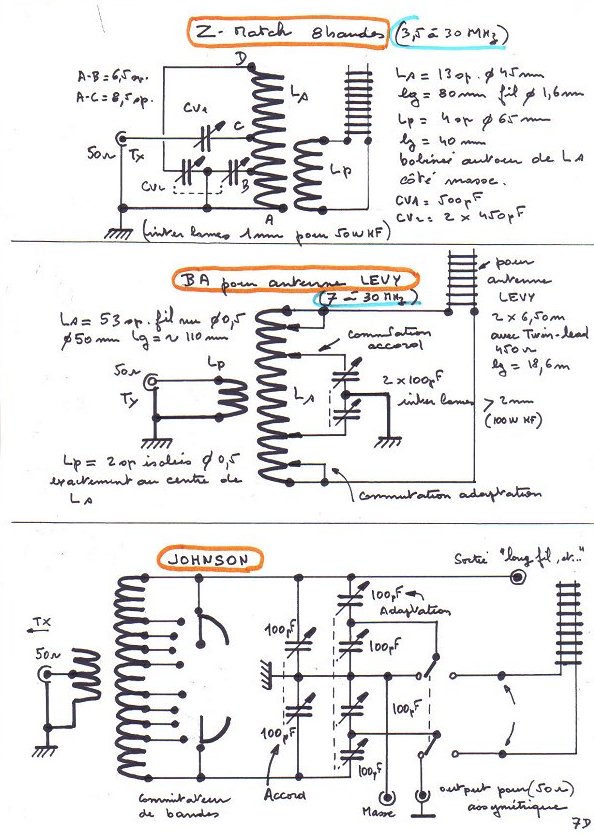 Z-Match 8 bandes (3,5 à 30 MHz)
A-B = 6,5 sp.
A-C = 8,5 sp.
D
CV1
C
LA
50Ω
Tx
CV2
B
A
Lp
(inter lames 1mm pour 50W HF)
LA = 13 sp. Ø 45 mm
lg = 80 mm fil Ø 1,6 mm
Lp = 4 sp Ø 65 mm
lg = 40 mm
bobinés autour de LA
côté masse.
CV1 = 500pF
CV2 = 2 x 450pF
BA pour antenne LEVY
(7 à 30 MHz)
LA = 53 sp. fil nu Ø 0,5
Ø 50 mm Lg = ~ 110 mm
50Ω
Tx
Lp
LA
commutation
accord
2 x 100pF
inter lames > 2mm
(100W HF)
pour
antenne
LEVY
2 x 6,50m
avec Twin-lead
450Ω
lg = 18,6 m
Lp = 2 sp isolés Ø 0,5
exactement au centre de
LA
commutation adaptation
JOHNSON
Sortie "long fil, et..."
TX
50Ω
100pF
Adaptation
100pF
100pF
100pF
100pF
100pF
Commutateur
de bandes
Accord
Masse
output pour (50Ω)
assymétrique
7D